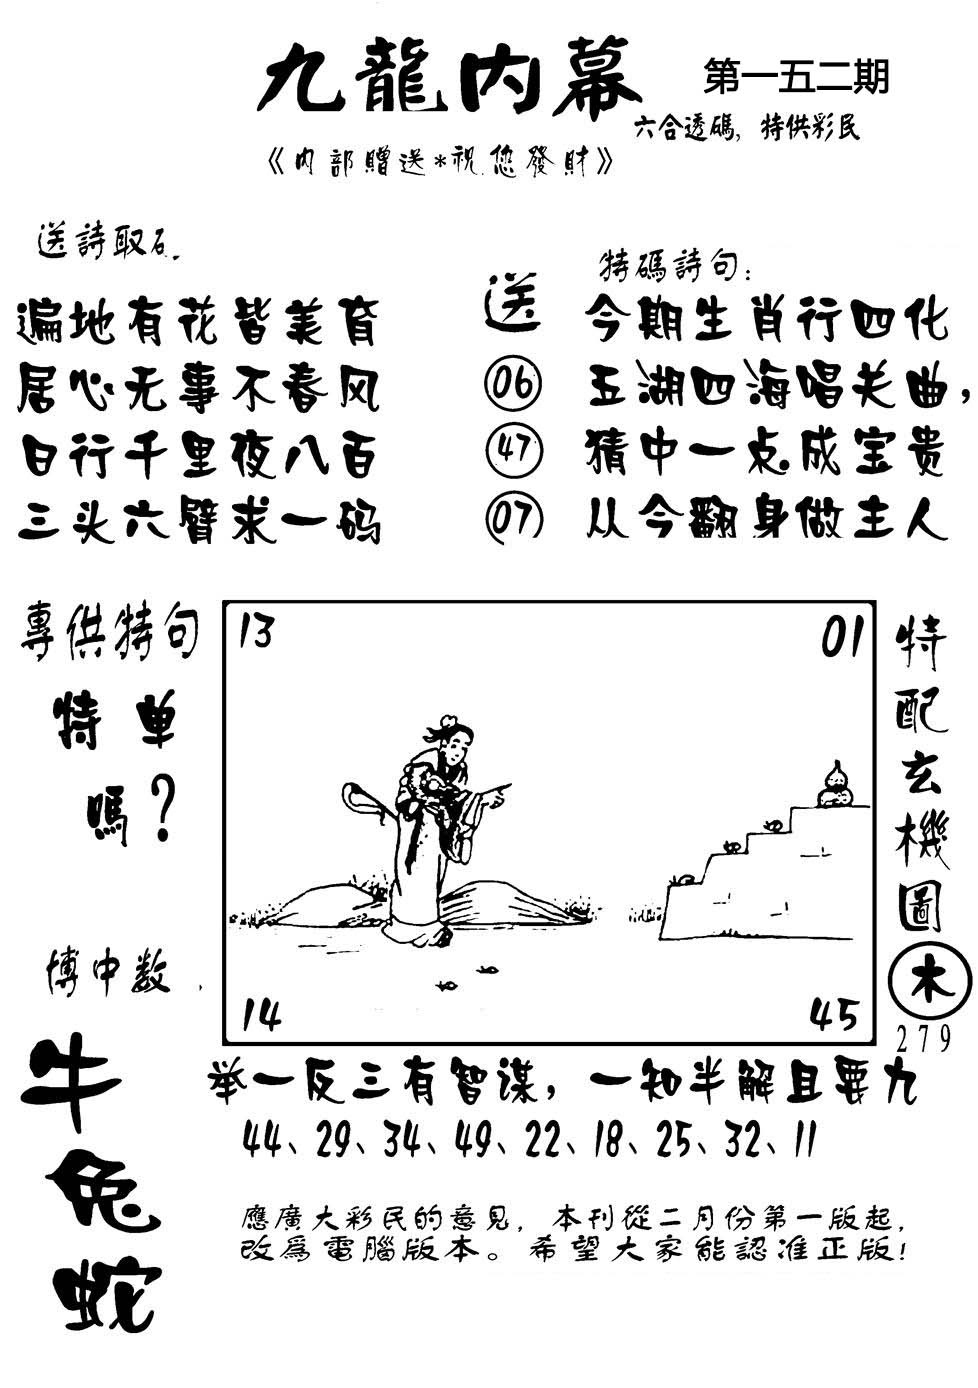 九龍内幕
第一五二期
六合透碼,特供彩民
《内部贈送*祝您發財》
送詩取
遍地有花皆美育
居心无事不春风
日行千里夜八百
三头六臂求一码
送
06
47
07
特碼詩句:
今期生肖行四化
五湖四海唱关曲,
猜中一点成宝贵
从今翻身做主人
專供特句
特单
嗎?
博中数
牛
兔
蛇
13
01
14
45
特
配
玄
機
圖
木
279
举一反三有智谋,一知半解且要九
44、29、34、49、22、18、25、32、11
應廣大彩民的意見,本刊從二月份第一版起,
改爲電腦版本。希望大家能認准正版!